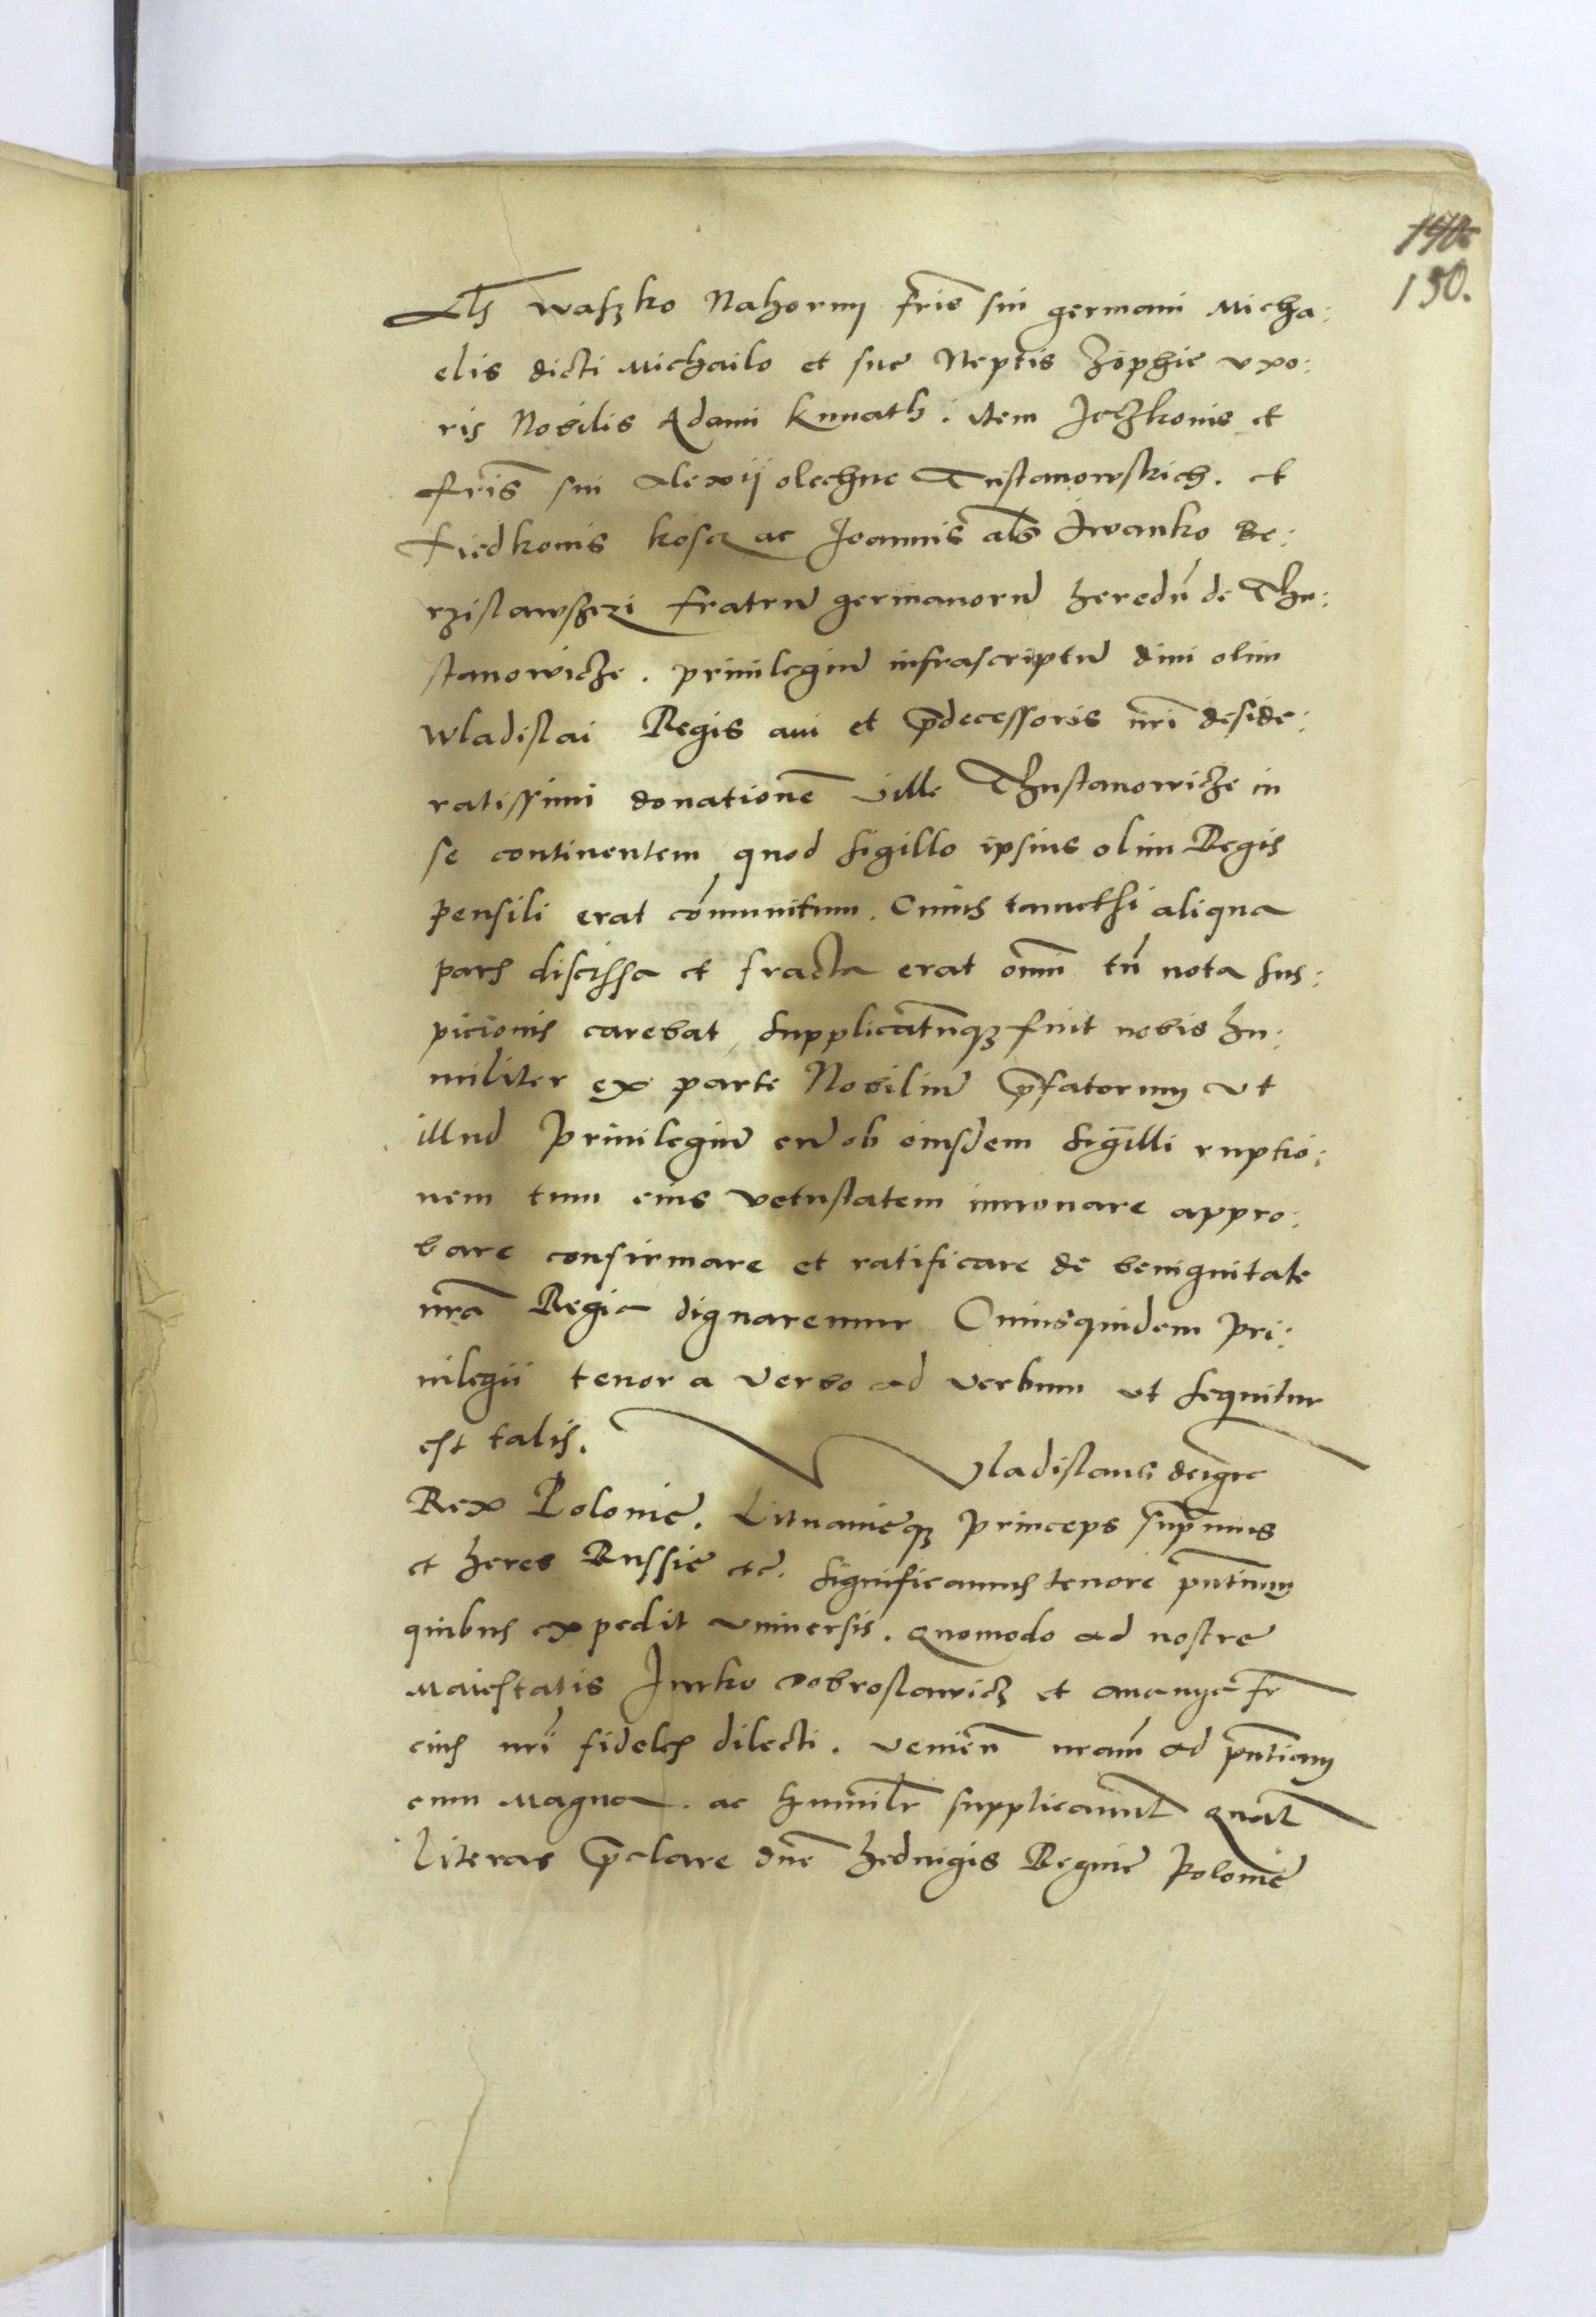 150.
Als Waszko Nahorny fris sui germani Micha:
elis dicti Michailo et sue Neptis Zophie vxo:
ris Nobilis Adami Kunath. item Jeczkonis et
fris sui Alexij olechne Tustanowskich. et
Fiedkonis Koscz ac Joannis als Iwanko Be:
rzislawsczi fratru germanoru heredu de Thu:
stanowicze. priuilegiu infrascriptu diui olim
Wladislai Regis aui et pdecessoris nri deside:
ratissimi donatione ville Thustanowicze in
se continentem quod sigillo ipsius olim Regis
pensili erat comunitum. Cuius tametsi aliqua
pars discissa et fracta erat omni tn nota sus:
picionis carebat, supplicatuqz fuit nobis hu:
militer ex parte Nobiliu pfatorum vt
illud Priuilegiu cu ob eiusdem sigilli ruptio:
nem tum eius vetustatem innouare appro:
bare confirmare et ratificare de benignitate
nra Regia dignaremur Cuiusquidem pri:
uilegii tenor a verbo ad verbum vt sequitur
est talis. Vladislaus dei gre
Rex Polonie. Lituanieqz princeps supmus
et heres Russie etc. significamus tenore pntium
quibus expedit vniuersis. quomodo ad nostre
Maiestatis Jurko Dobroslawicz et fr
eius nri fideles dilecti. venien nram ad pntiam
cum magna. ac humilr supplicarunt quat
literas pclare dne Hedwigis Regine Polonie